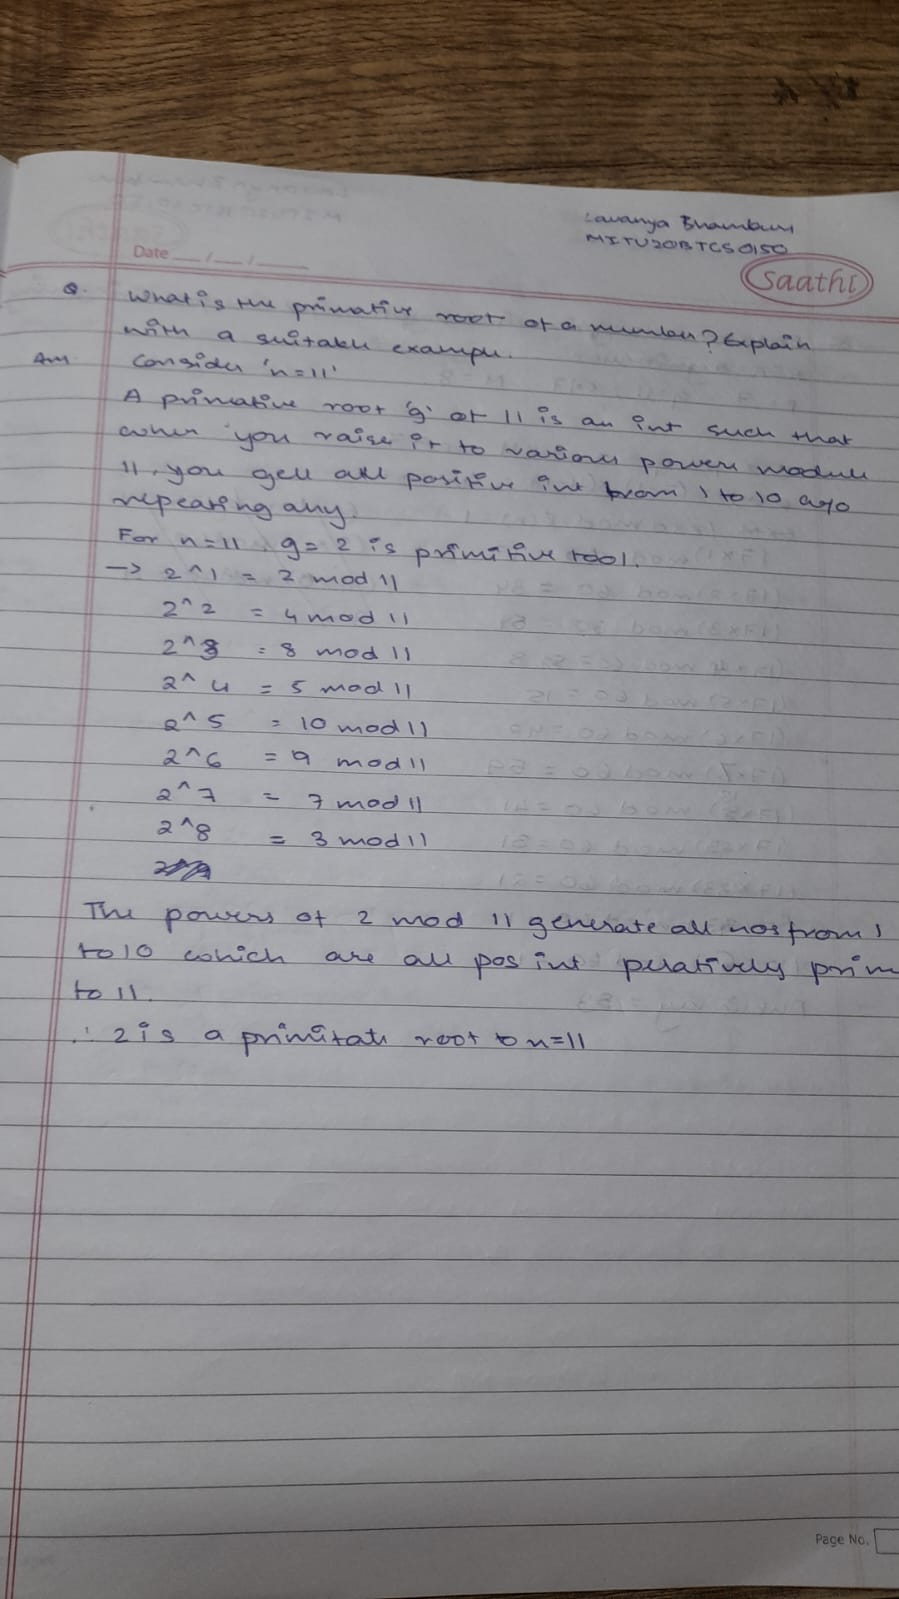 Lavanya Bhambure
MITU20BTCS0150
Date __/__/____
Saathi
Q. What is the primative root of a number? Explain
with a suitable example.
Ans Consider 'n=11'
A primative root 'g' of 11 is an int such that
when you raise it to various powers modulu
11, you get all positive int from 1 to 10 w/o
repeating any.
For n=11, g=2 is primitive root.
-> 2^1 = 2 mod 11
2^2 = 4 mod 11
2^3 = 8 mod 11
2^4 = 5 mod 11
2^5 = 10 mod 11
2^6 = 9 mod 11
2^7 = 7 mod 11
2^8 = 3 mod 11
The powers of 2 mod 11 generate all nos from 1
to 10 which are all pos int relatively prim
to 11.
∴ 2 is a root to n=11
Page No.